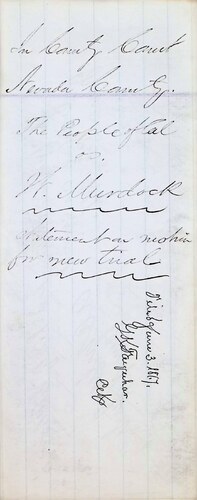 In County Court
Nevada County.
The People of Cal
vs.
W. Murdock
Statement on motion
for new trial
Filed June 3. 1867.
G K Farquhar.
Clk